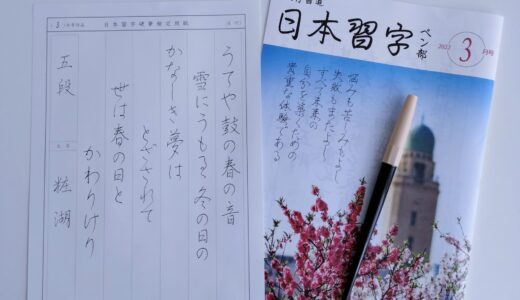 日本習字硬筆検定用紙
うてや鼓の春の音
雪にうもるゝ冬の日の
かなしき夢は
とざされて
世は春の日と
かわりけり
五段
粧湖
日本習字
ペン部
2022
3
月号
悩みも苦しみもよし
失敗もまたよし
すべて未来の
自分を築くための
貴重な体験である